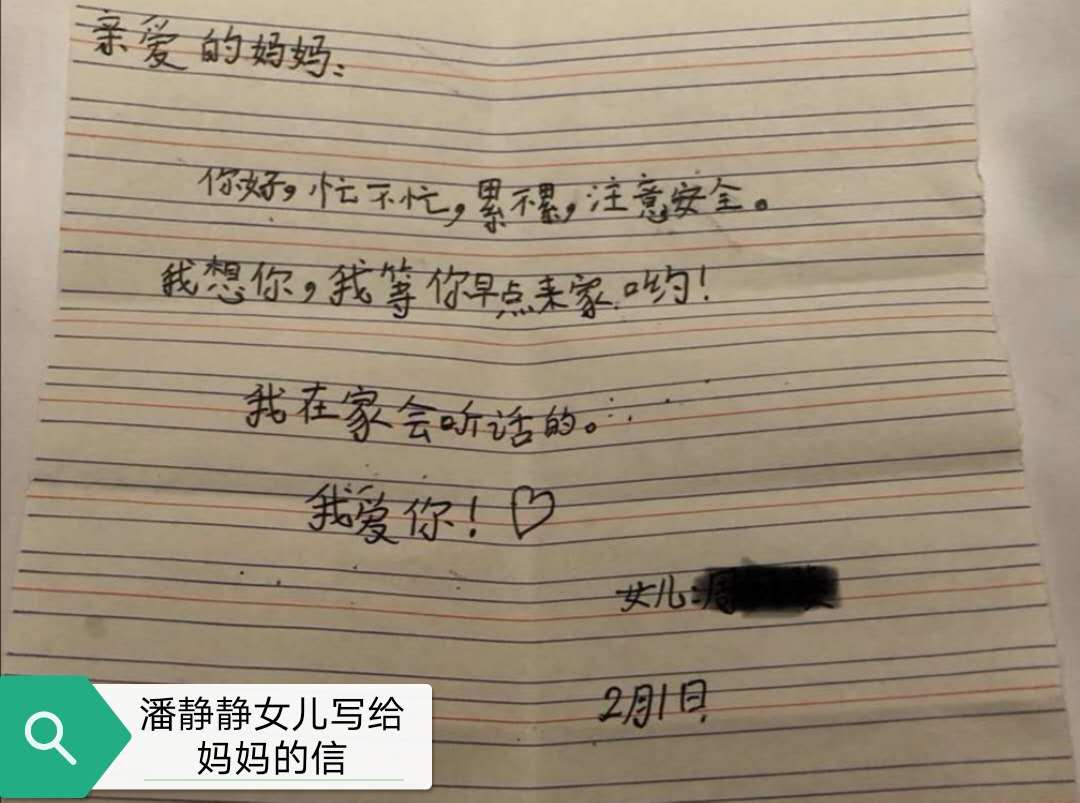 亲爱的妈妈：
你好，忙不忙，累不累，注意安全。
我想你，我等你早点来家哟！
我在家会听话的。
我爱你！♡
女儿：周
2月1日
潘静静女儿写给
妈妈的信